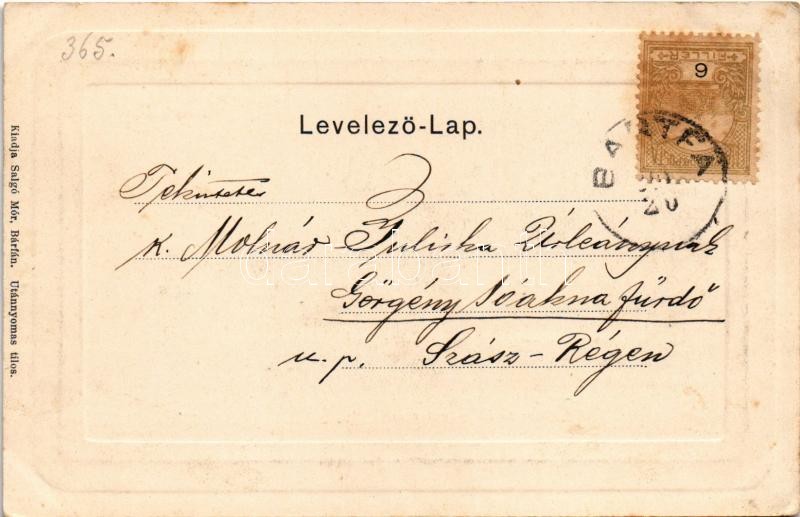 365.
FILLÉR
6
Levelező-Lap.
BÁRTFA
Tekintetes
K. Molnár Juliska Úrleánynak
Görgény Sóakna fürdő
u. p. Szász-Régen
Kiadja Salgó Mór, Bárfán. Utánnyomas tilos.
darabanth